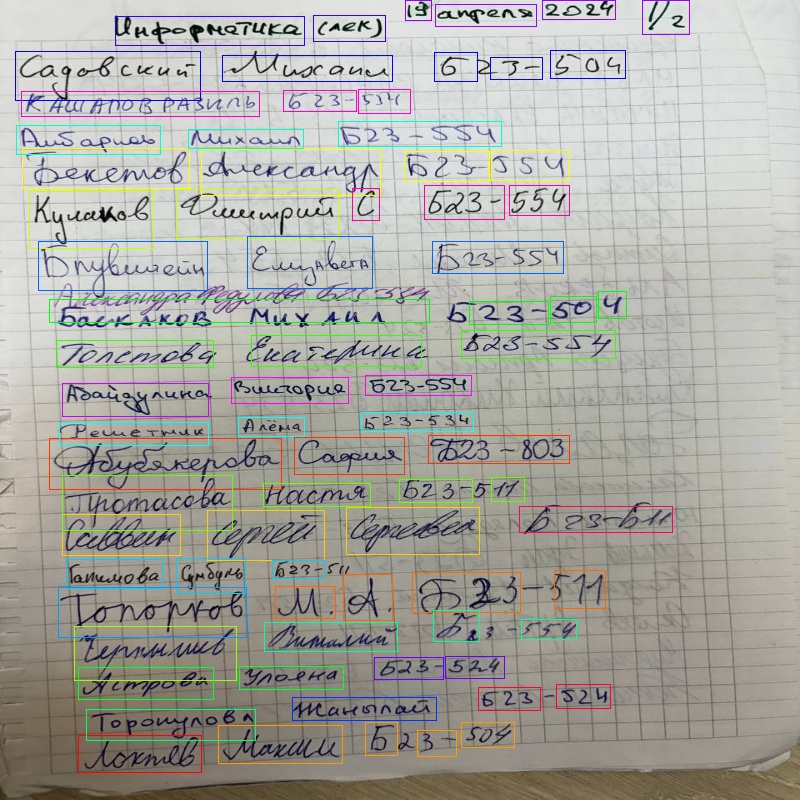 Информатика (лек) 19 апреля 2024 1/2
Садовский Михаил Б23-504
КАШАПОВ РАЗИЛЬ Б23-534
Михаил Б23-554
Бекетов Александр Б23-554
Кулаков Дмитрий С Б23-554
Елизавета Б23-554
Александра Федулова Б23-534
Баскаков Михаил Б23-504
Толстова Екатерина Б23-554
Абайдулина Виктория Б23-554
Решетник Алёна Б23-534
Абубякерова Сафия Б23-803
Протасова Настя Б23-511
Саввин Сергей Сергеевич Б23-Б11
Галимова Сумбуль Б23-511
Топорков М. А. Б23-511
Чернышев Виталий Б23-554
Астрова Ульяна Б23-524
Торокулова Жанылай Б23-524
Локтев Максим Б23-504